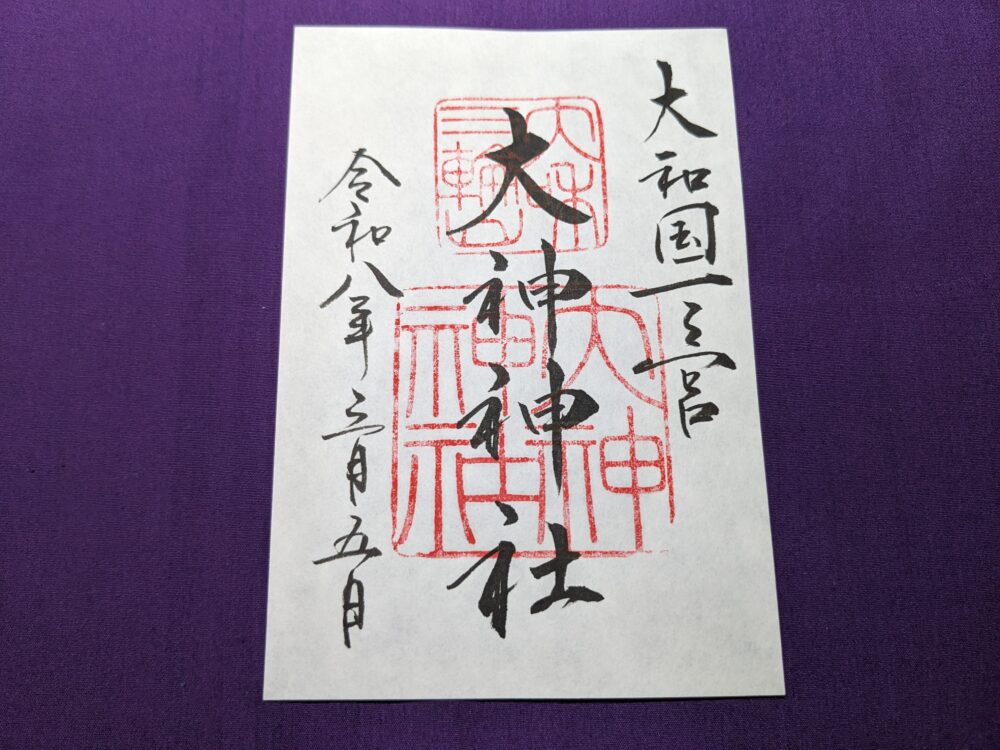 大和国一之宮
大神神社
令和八年三月五日
大神
神社